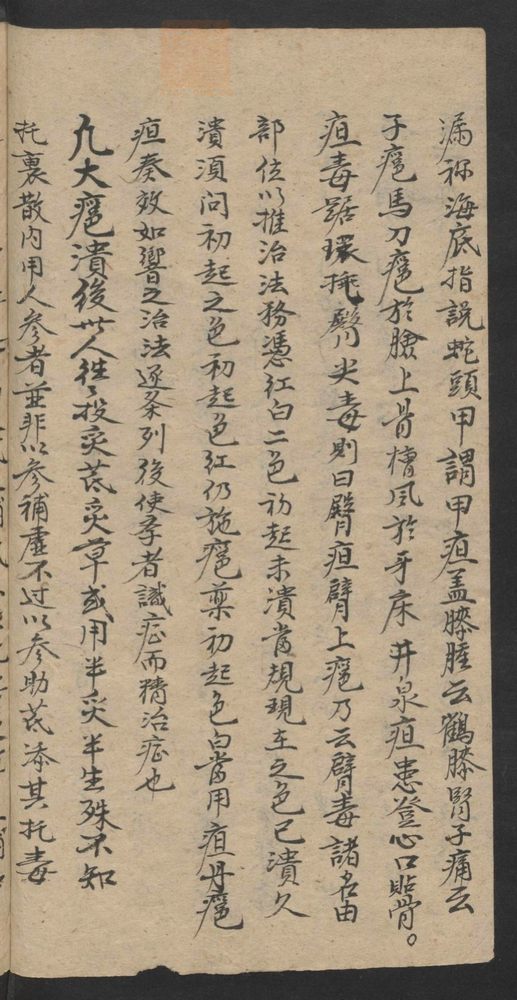 漏称海底指説蛇頭甲謂甲疽盖膝腫云鶴膝腎子痛云
子癰馬刀癰於臁上骨槽風於牙床井泉疽患登心口貼骨。
疽毒踞環挑臀尖毒則曰臂疽臂上癰乃云臂毒諸名由
部位以推治法務憑紅白二色初起未潰當規現在之色已潰久
潰須問初起之色初起色紅仍施癰藥初起色白當用疽丹癰
疽奏效如響之治法逐条列後使孝者識症而精治症也
凡大癰潰後世人往々投炙芪炙草或用半炙半生殊不知
托裏散內用人参者並非以参補虛不过以参助芪添其托毒